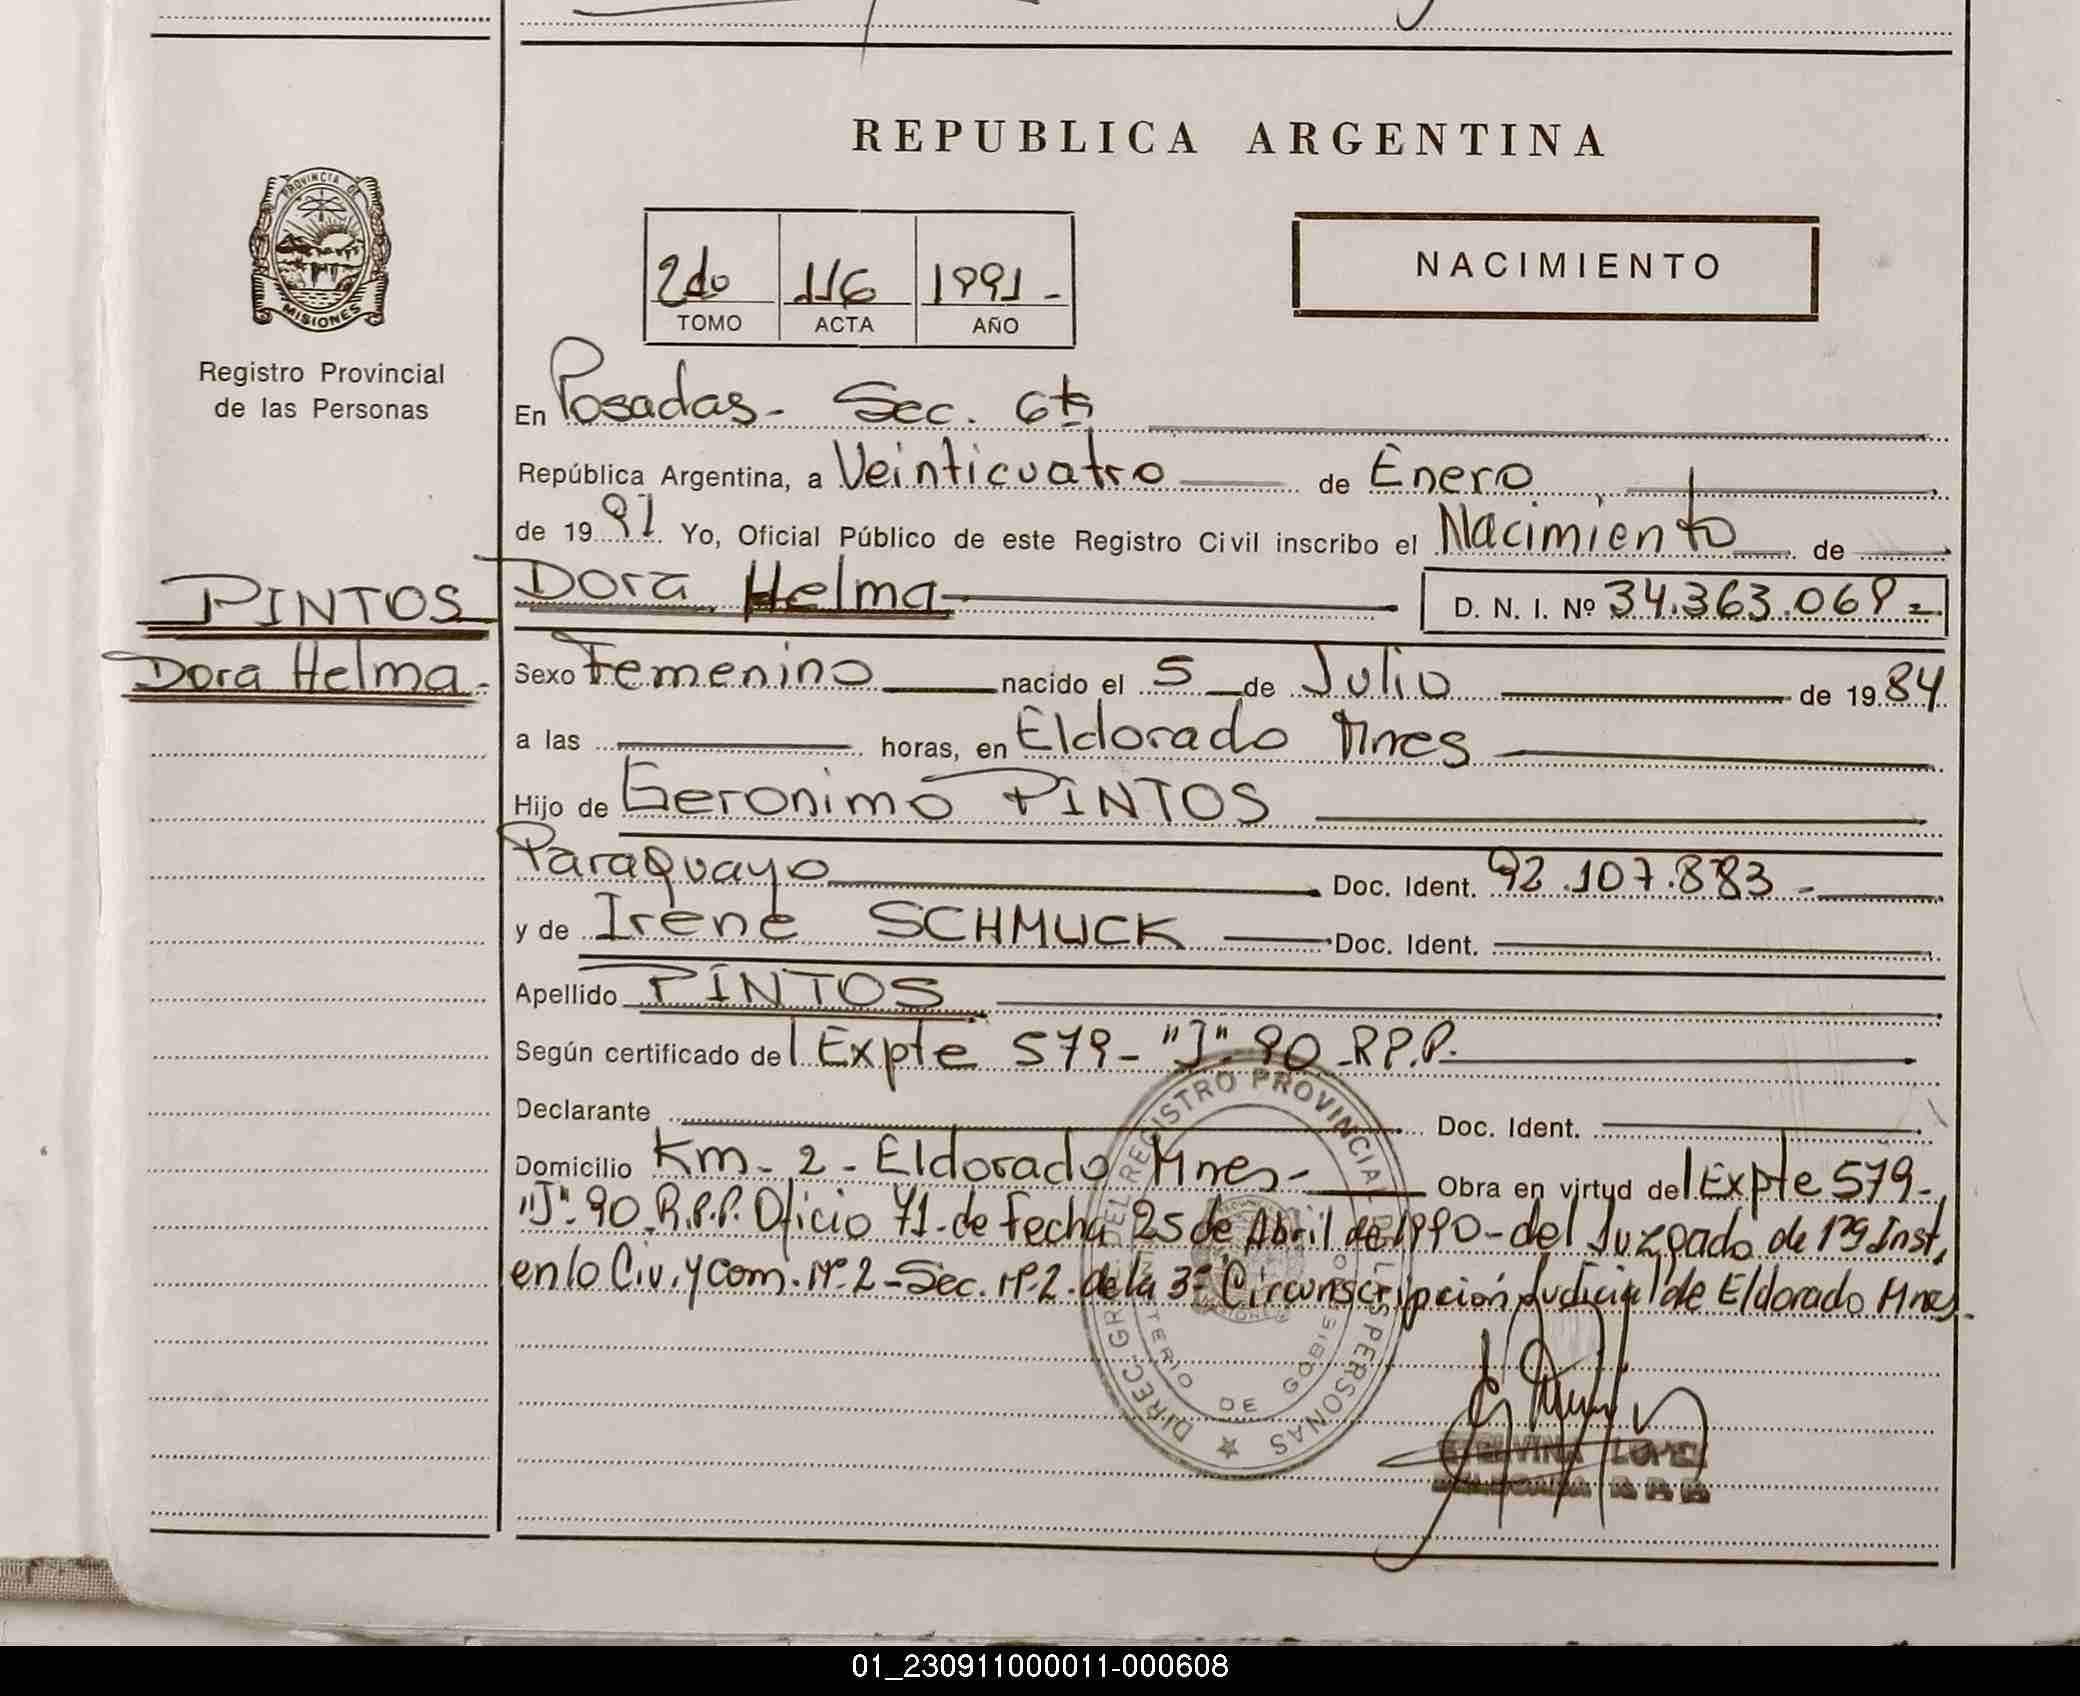 REPUBLICA ARGENTINA
PROVINCIA DE
MISIONES
Registro Provincial
de las Personas
2do 116 1991-
TOMO ACTA AÑO
NACIMIENTO
En Posadas- Sec. 6ta
República Argentina, a Veinticuatro de Enero
de 1991 Yo, Oficial Público de este Registro Civil inscribo el Nacimiento de
PINTOS Dora Helma D. N. I. Nº 34.363.069-
Dora Helma-
Sexo Femenino nacido el 5 de Julio de 1984
a las horas, en Eldorado Mnes
Hijo de Geronimo PINTOS
Paraguayo Doc. Ident. 92.107.883-
y de Irene SCHMUCK Doc. Ident.
Apellido PINTOS
Según certificado del Expte 579- "J"-90-R.P.P.
Declarante Doc. Ident.
Domicilio Km-2-Eldorado Mnes- Obra en virtud del Expte 579-
"J"-90-R.P.P. Oficio 71-de Fecha 25 de Abril de 1990-del Juzgado de 1ra Inst.
en lo Civ. y Com. Nº 2-Sec. Nº 2. de la 3ª Circunscripción Judicial de Eldorado Mnes-
DIREC. GRAL DEL REGISTRO PROVINCIAL DE LAS PERSONAS
MINISTERIO DE GOBIERNO
LOPEZ
01_230911000011-000608